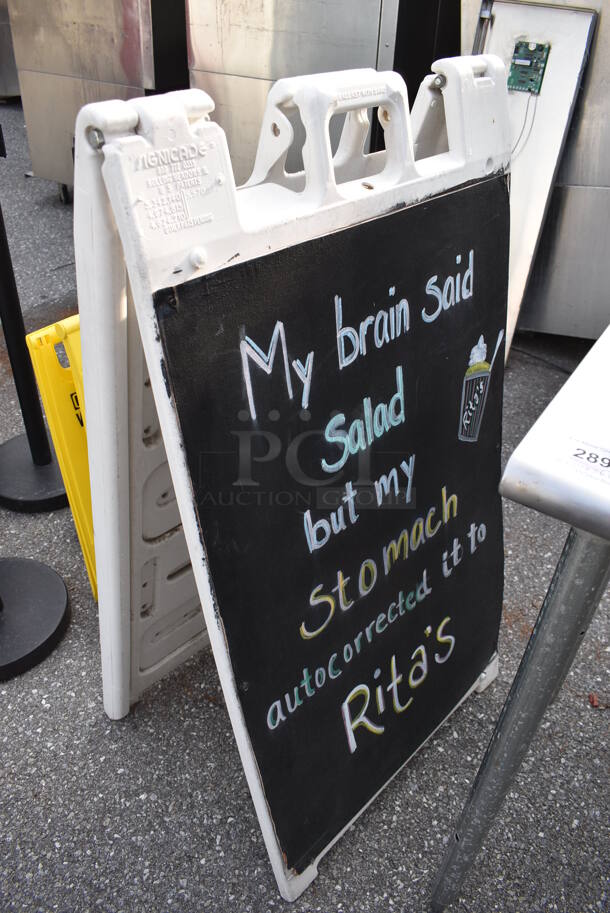 SIGNICADE
My brain said
Salad
but my
Stomach
autocorrected it to
Rita's
Rita's
PCI
AUCTION GROUP
289